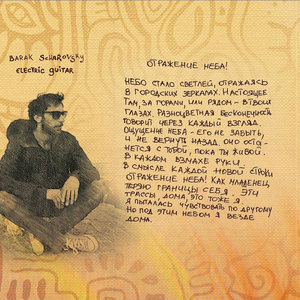 BARAK SCHAROVSKY
ELECTRIC GUITAR
ОТРАЖЕНИЕ НЕБА!
НЕБО СТАЛО СВЕТЛЕЙ, ОТРАЖАЯСЬ
В ГОРОДСКИХ ЗЕРКАЛАХ. НАСТОЯЩЕЕ
ТАМ, ЗА ГОРАМИ, ИЛИ РЯДОМ - В ТВОИХ
ГЛАЗАХ. РАЗНОЦВЕТНАЯ БЕСКОНЕЧНОСТЬ
ГОВОРИТ ЧЕРЕЗ КАЖДЫЙ ВЗГЛЯД.
ОЩУЩЕНИЕ НЕБА - ЕГО НЕ ЗАБЫТЬ,
И НЕ ВЕРНУТЬ НАЗАД. ОНО ОСТА-
НЕТСЯ С ТОБОЙ, ПОКА ТЫ ЖИВОЙ.
В КАЖДОМ ВЗМАХЕ РУКИ.
В СМЫСЛЕ КАЖДОЙ НОВОЙ СТРОКИ
ОТРАЖЕНИЕ НЕБА! КАК МЛАДЕНЕЦ,
ТЕРЯЮ ГРАНИЦЫ СЕБЯ. ЭТИ
ТРАССЫ, ДОМА, ЭТО ТОЖЕ Я.
Я ПЫТАЛАСЬ ЧУВСТВОВАТЬ ПО ДРУГОМУ
НО ПОД ЭТИМ НЕБОМ Я ВЕЗДЕ
ДОМА.